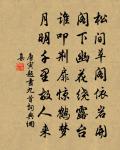 松間草閣依岩開
閣下幽花繞露台
誰叩荊扉驚鶴夢
月明千里故人來
唐寅題畫九首詞典網
集